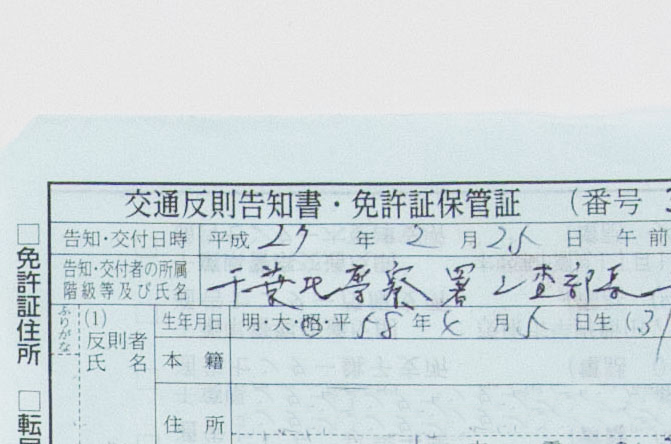 交通反則告知書・免許証保管証 (番号
告知・交付日時 平成 27 年 2 月 25 日 午前
告知・交付者の所属 階級等及び氏名 千葉北警察署 巡査部長
(1) 反則者 氏名 ふりがな
生年月日 明・大・昭・平 58 年 月 5 日生 (31
本籍
住所
□免許証住所
□転居